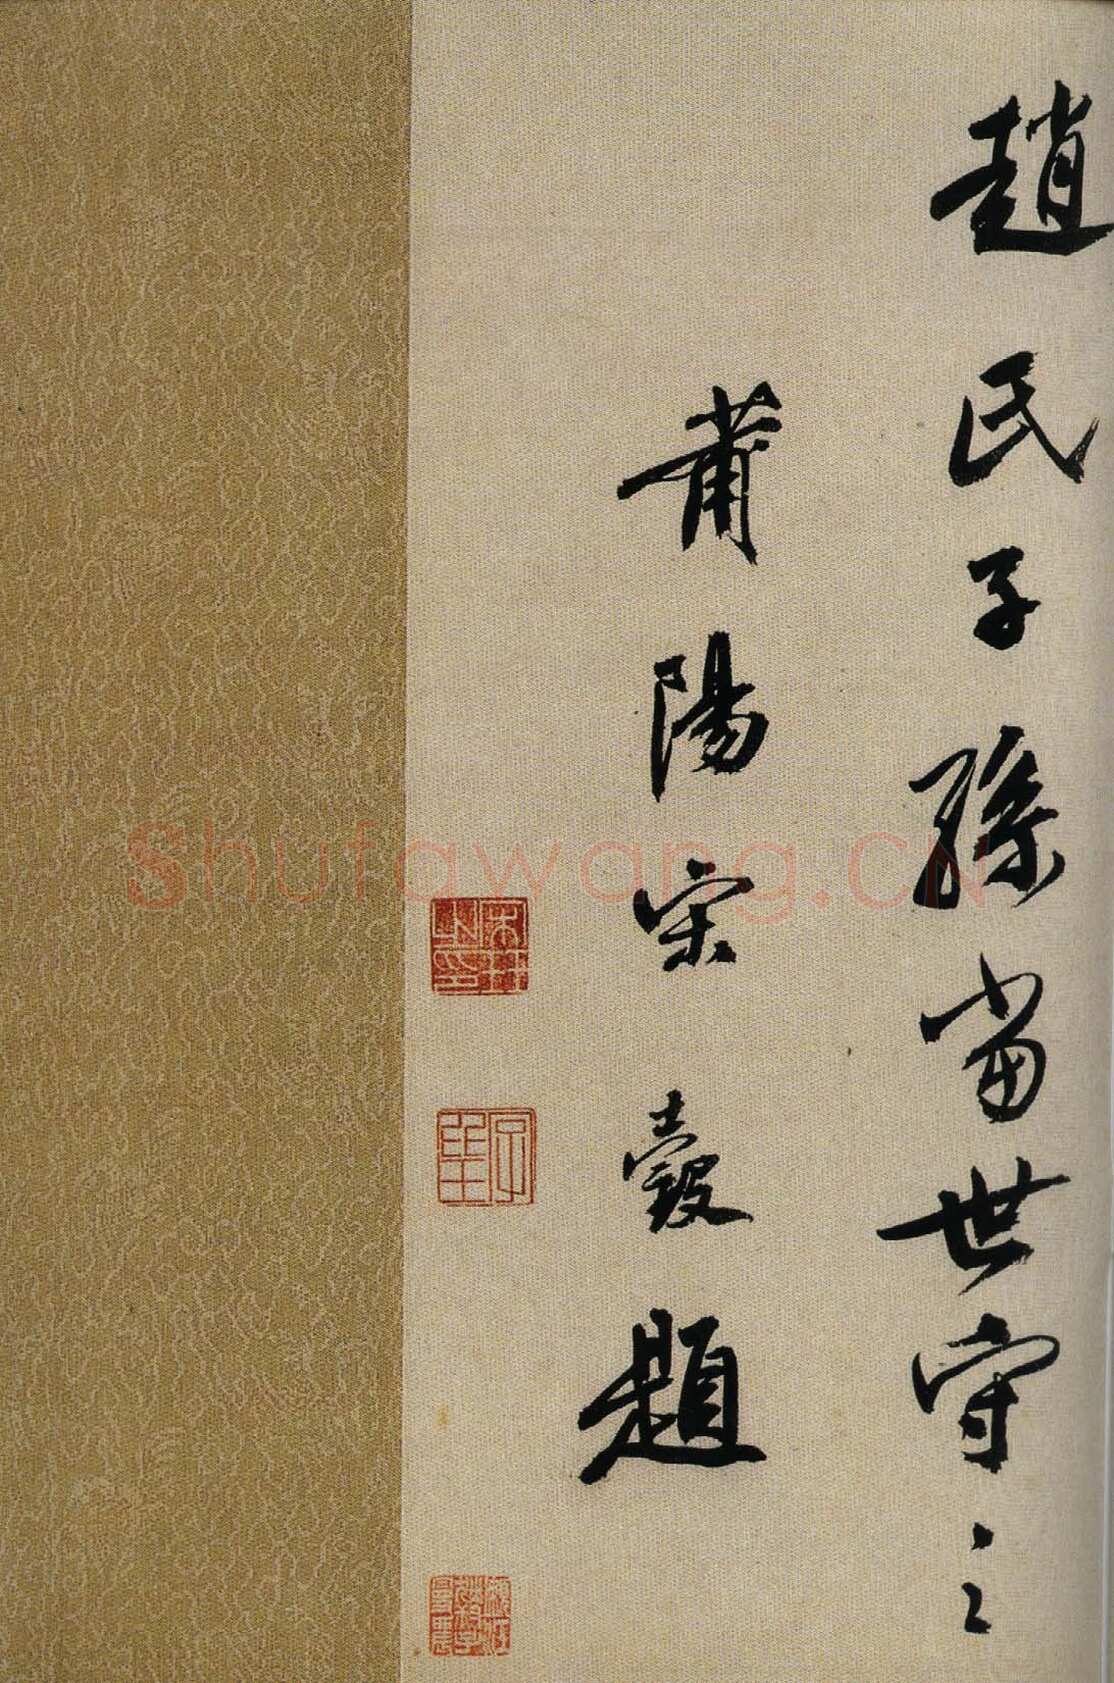 趙氏子孫當世守之
莆陽宋瑴題
Shufawang.CN
子墾